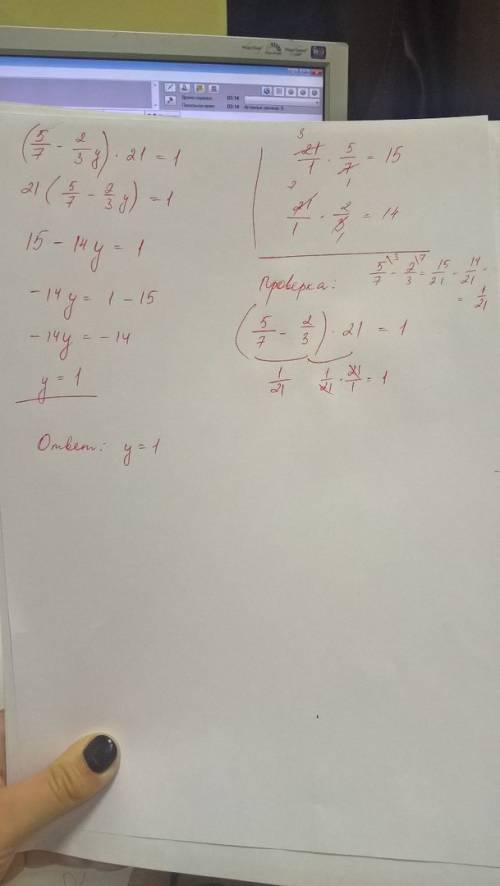 (5/7 - 2/3 y) · 21 = 1
21 (5/7 - 2/3 y) = 1
15 - 14y = 1
-14y = 1 - 15
-14y = -14
y = 1
Ответ: y = 1
3
21/1 · 5/7 = 15
1
21/1 · 2/3 = 14
1
Проверка:
5/7 \3 - 2/3 \7 = 15/21 - 14/21 =
= 1/21
(5/7 - 2/3) · 21 = 1
1/21 1/21 · 21/1 = 1